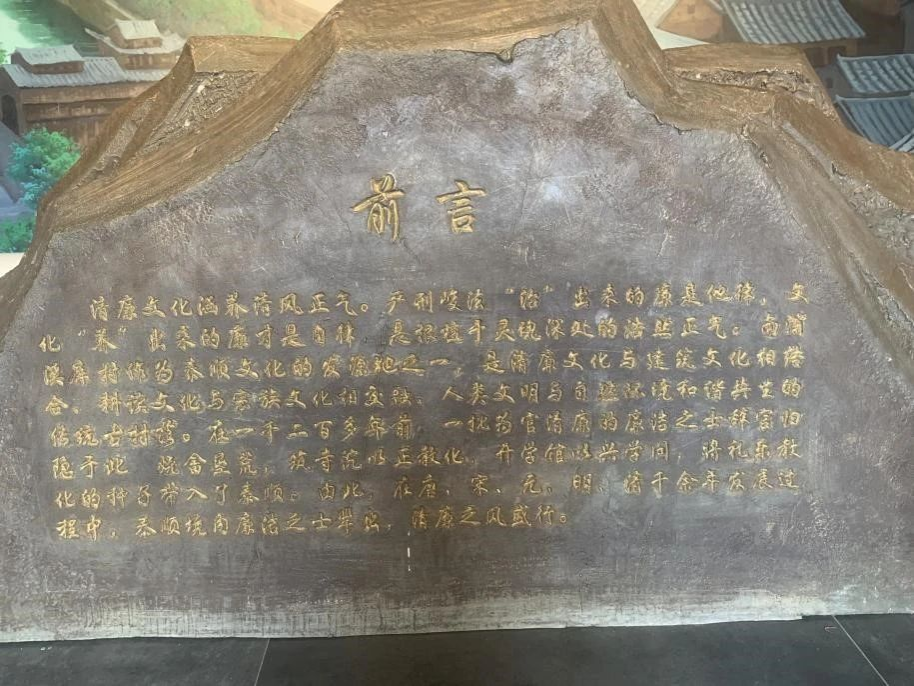 前言
清廉文化涵养清风正气。严刑峻法“治”出来的廉是他律，文
化“养”出来的廉才是自律，是根植于灵魂深处的浩然正气。南浦
溪库村作为泰顺文化的发源地之一，是清廉文化与建筑文化相结
合、耕读文化与宗族文化相交融、人类文明与自然环境和谐共生的
传统古村落。在一千二百多年前，一批为官清廉的廉洁之士辞官归
隐于此 烧畲垦荒，筑寺院以正教化，开学馆以兴学问，将礼乐教
化的种子带入了泰顺。由此，在唐、宋、元、明、清千余年发展过
程中，泰顺境内廉洁之士辈出，清廉之风盛行。